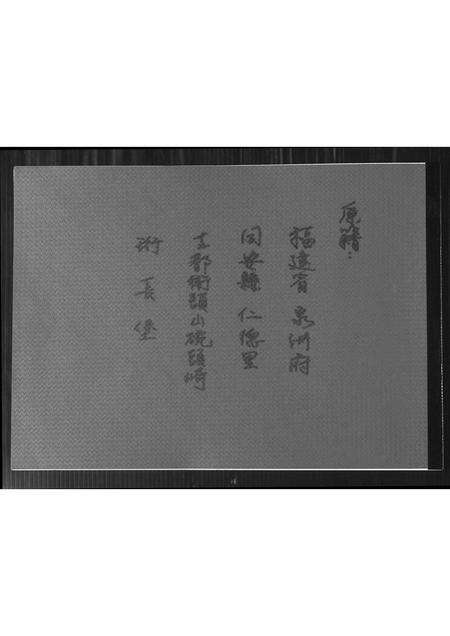 原籍:
福建省 泉州府
同安縣 仁德里
十都衛頭山硗頭崎
許長堡